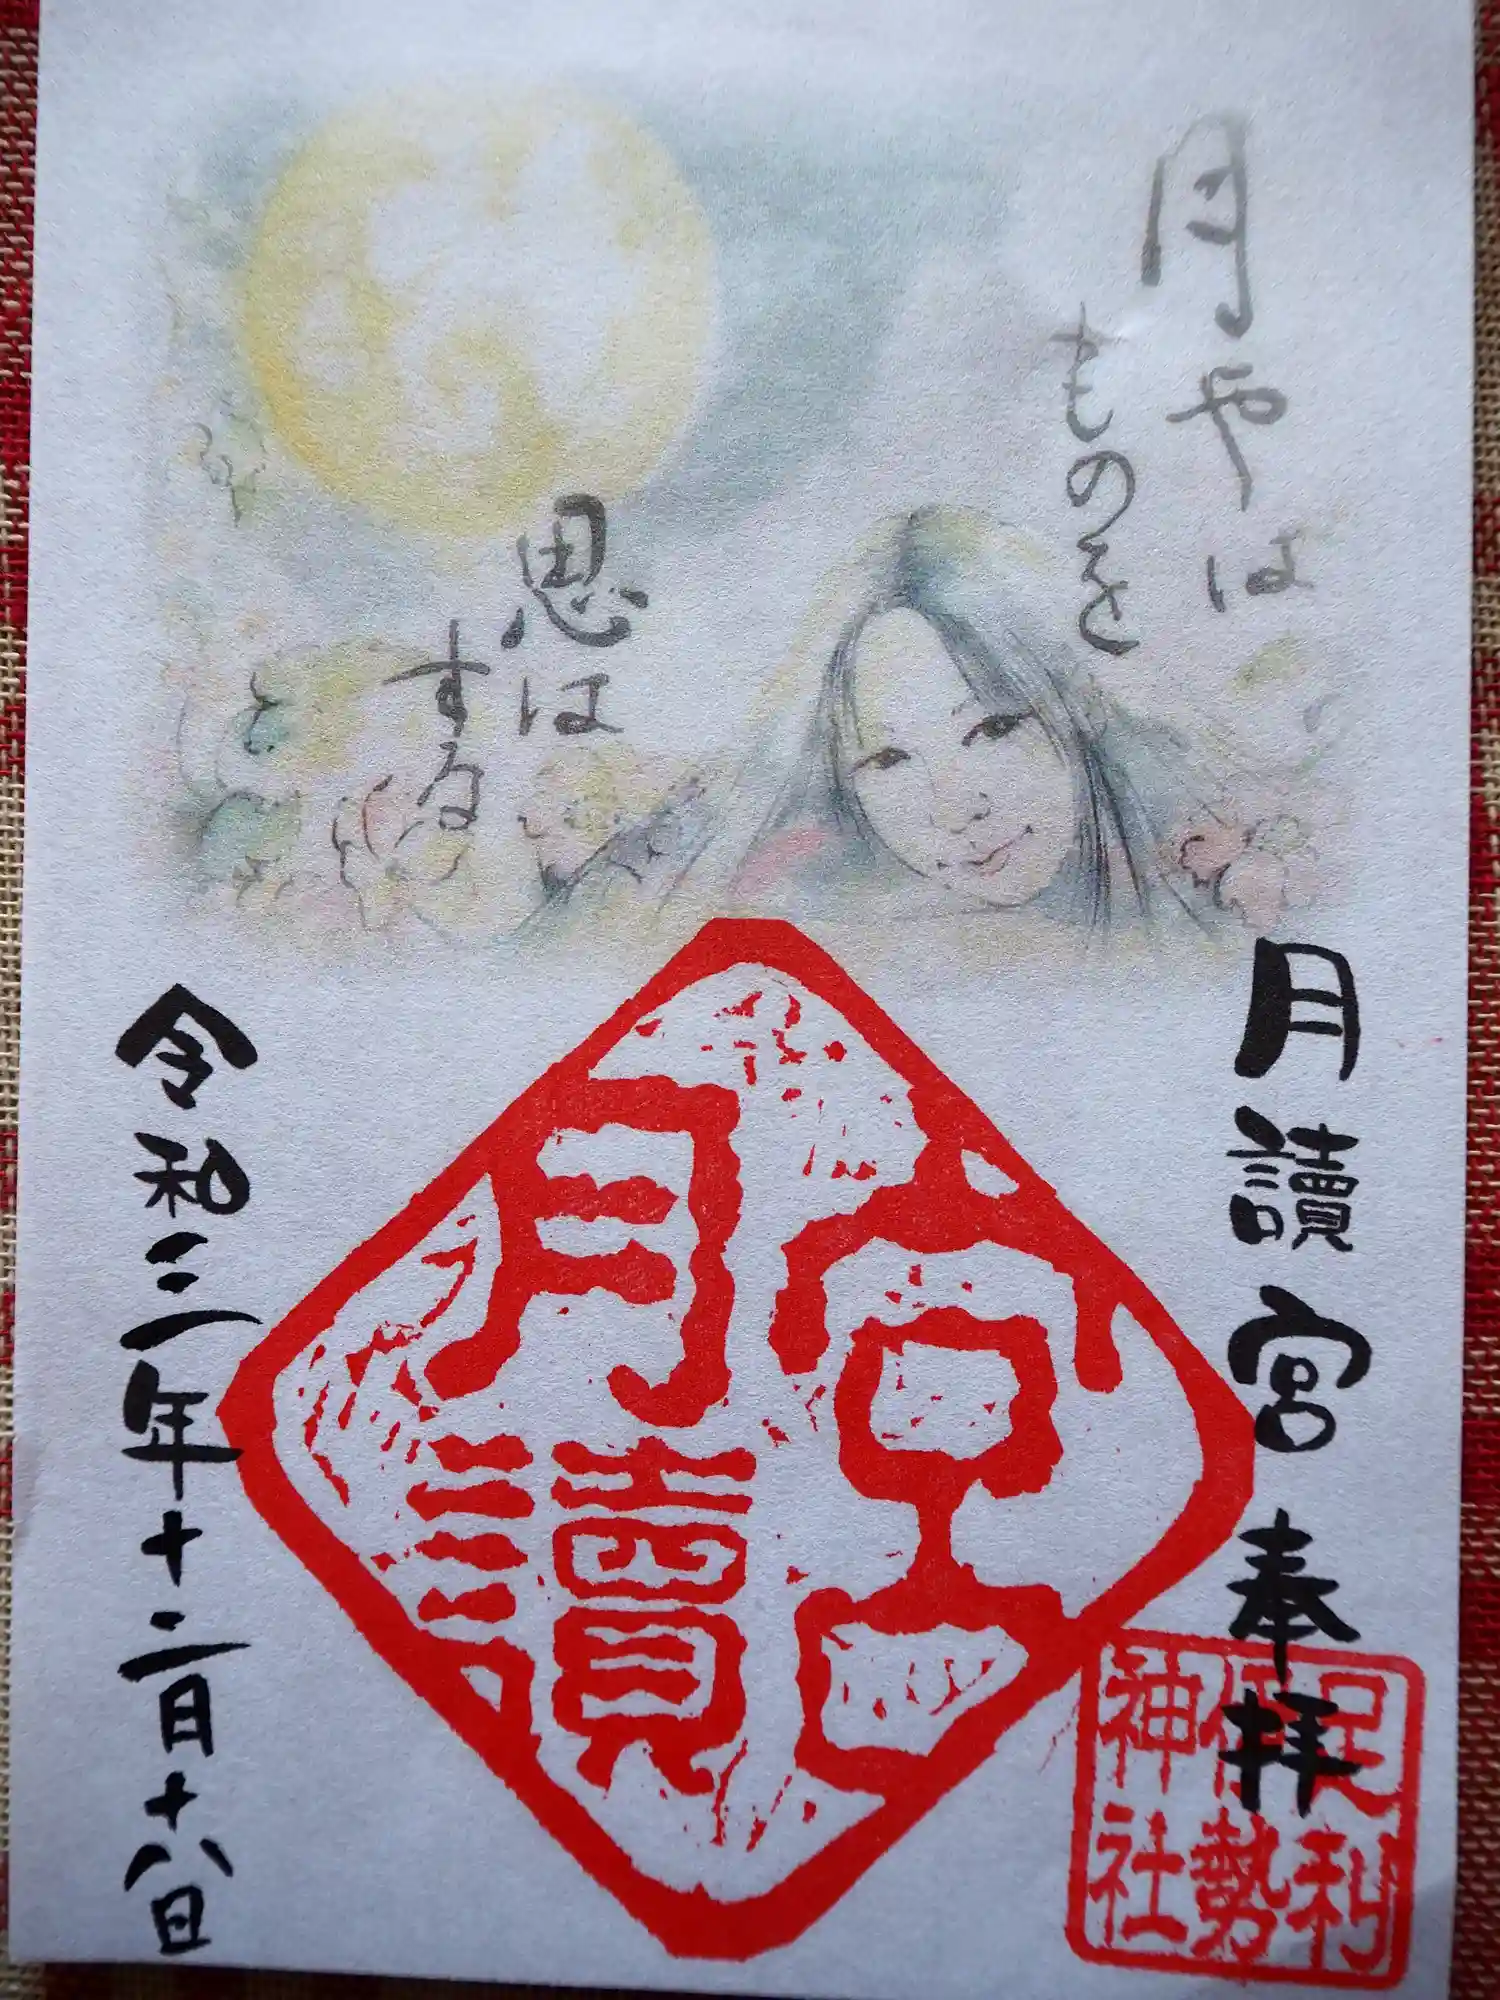 月やは
ものを
思は
する
月讀宮奉拝
月讀
宮
足利
伊勢
神社
令和三年十二月十八日